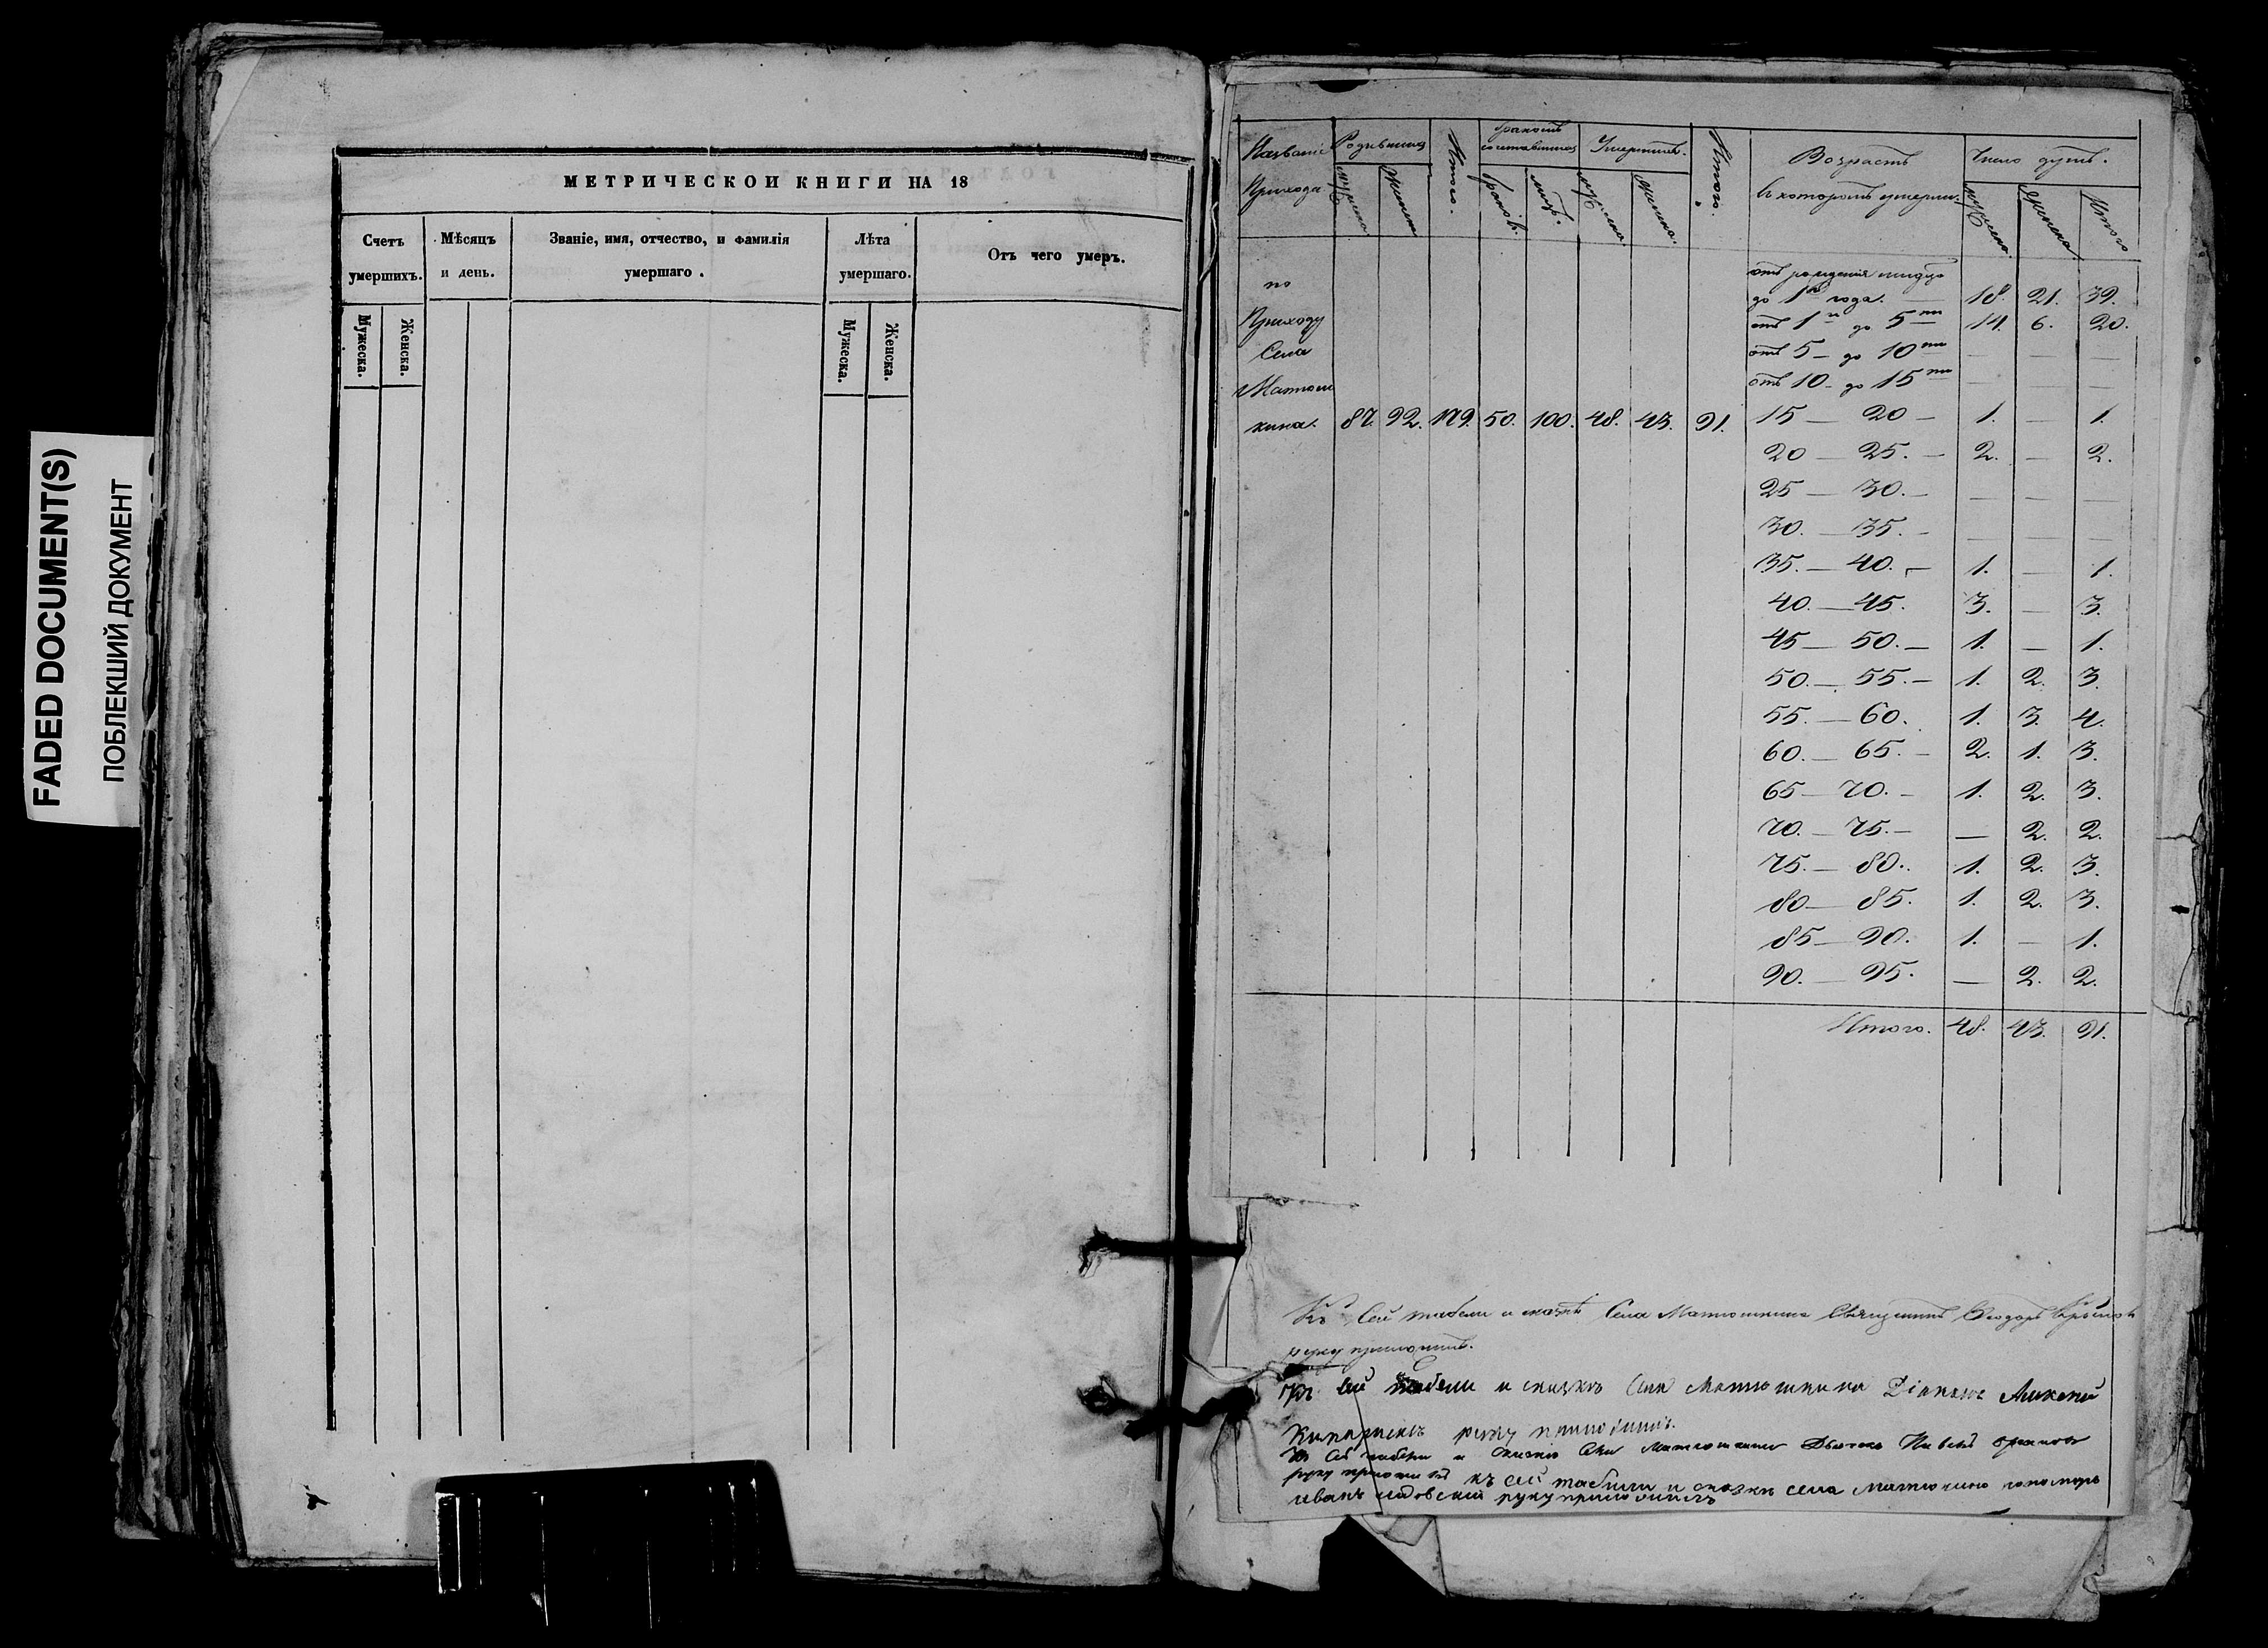 FADED DOCUMENT(S)
ПОБЛЕКШИЙ ДОКУМЕНТ
МЕТРИЧЕСКОЙ КНИГИ НА 18
Счетъ умершихъ.
Мѣсяцъ и день.
Званіе, имя, отчество, и фамилія умершаго.
Лѣта умершаго.
Отъ чего умеръ.
Мужеска.
Женска.
Мужеска.
Женска.
Названіе Прихода
Родившихся
Итого.
Умершихъ.
Итого.
Возрастъ въ которомъ умерли.
Число душъ.
Мужеска.
Женска
браковъ.
лицъ.
Мужеска.
Женска.
Мужеска.
Женска
Итого
по
Приходу
Села
Матюш
кина. 87. 92. 179. 50. 100. 48. 43. 91.
отъ рожденія
до 1го года. — 18. 21. 39.
отъ 1 до 5ти 14. 6. 20.
отъ 5 — до 10ти — — —
отъ 10 — до 15ти — — —
15 — 20 — 1. — 1.
20 — 25. — 2. — 2.
25 — 30. — — — —
30. — 35. — — — —
35. — 40. — 1. — 1.
40. — 45. 3. — 3.
45 — 50. — 1. — 1.
50. — 55. — 1. 2. 3.
55. — 60. 1. 3. 4.
60. — 65. — 2. 1. 3.
65 — 70. — 1. 2. 3.
70. — 75. — — 2. 2.
75. — 80. 1. 2. 3.
80 — 85. 1. 2. 3.
85 — 90. 1. — 1.
90. — 95. — 2. 2.
Итого. 48. 43. 91.
Къ сей табели и Села Матюшкина Священникъ Ѳеодоръ
руку приложилъ.
Къ сей табели и сказкѣ Села Матюшкина Діаконъ Алексѣй
Кипарисовъ руку приложилъ.
Къ сей табели и Села Матюшкина Дьячекъ
руку приложилъ къ сей табели и сказки села пономарь
иванъ руку приложилъ